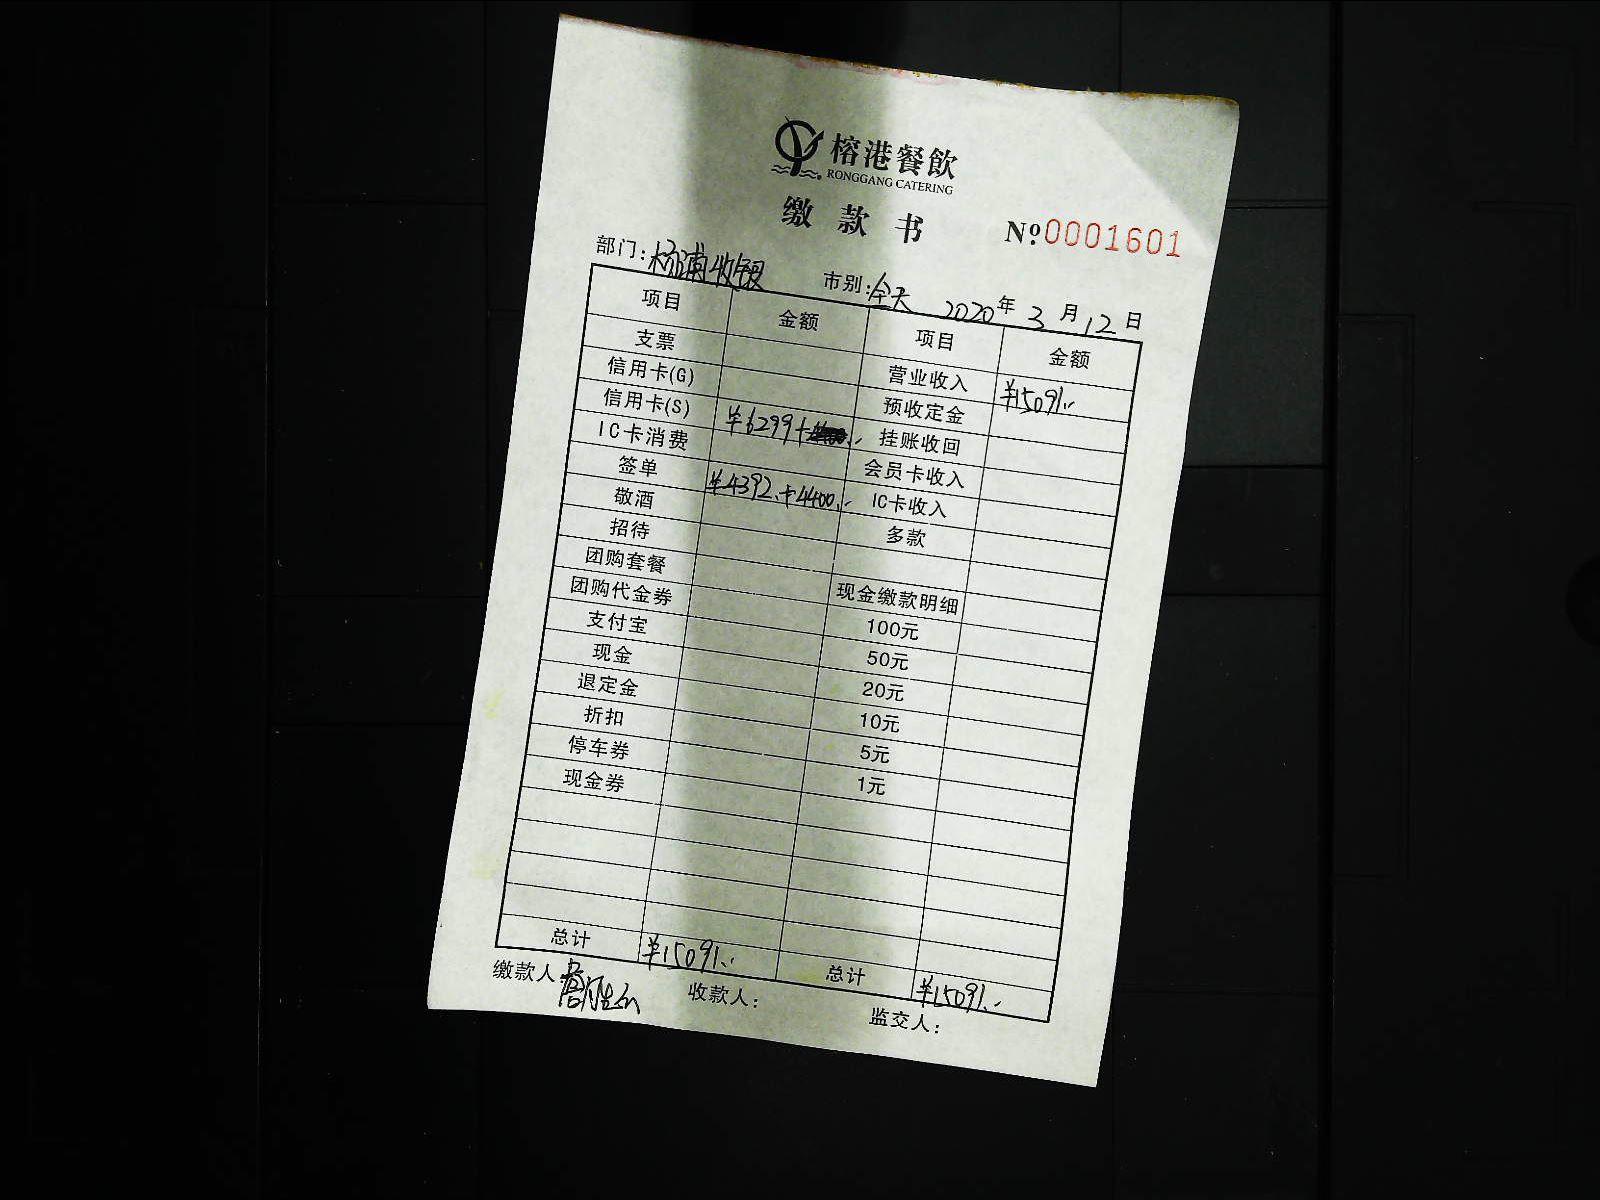 榕港餐飲
RONGGANG CATERING
缴款书 №0001601
部门：杨浦收银 市别：全天 2020年3月12日
项目 金额 项目 金额
支票 营业收入 ¥15091.
信用卡(G) 预收定金
信用卡(S) ¥6299+ 挂账收回
IC卡消费 会员卡收入
签单 ¥4392.+4400. IC卡收入
敬酒 多款
招待
团购套餐 现金缴款明细
团购代金券 100元
支付宝 50元
现金 20元
退定金 10元
折扣 5元
停车券 1元
现金券
总计 ¥15091. 总计 ¥15091.
缴款人： 收款人： 监交人：